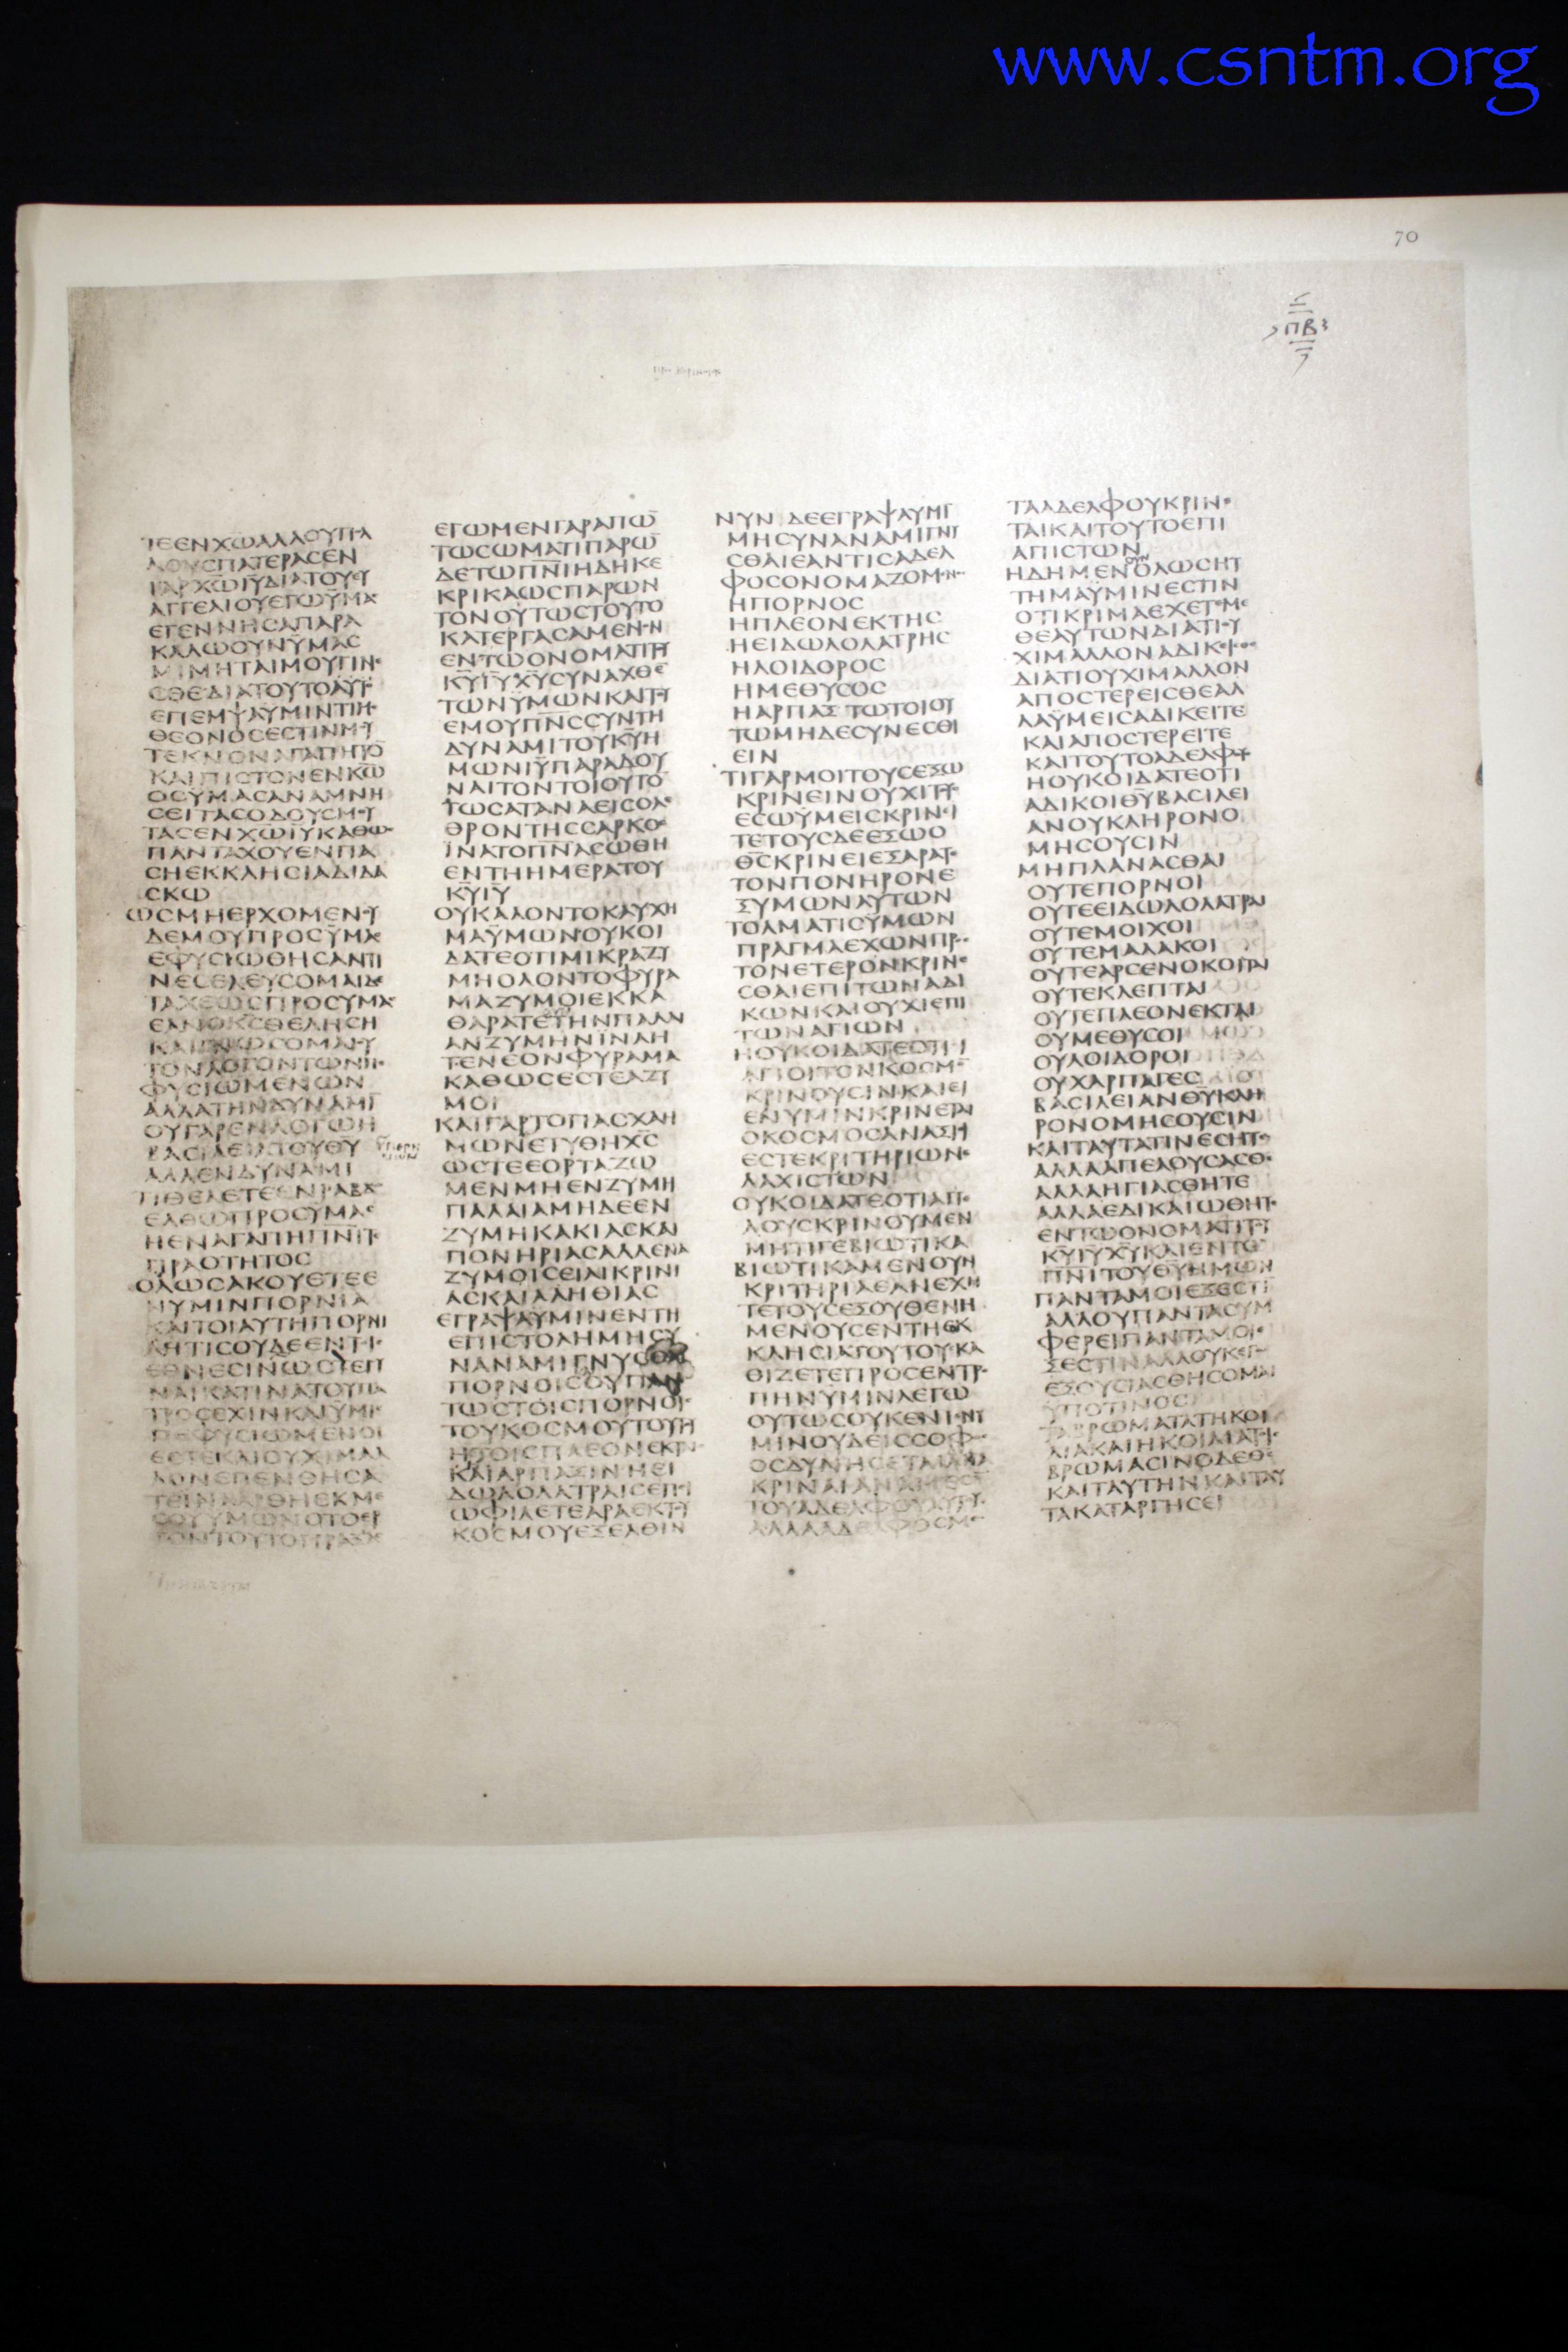 www.csntm.org
70
ΠΒ
ΤΕΕΝΧΩΑΛΛΟΥΠΑ
ΛΟΥΣΠΑΤΕΡΑСΕΝ
ΓΑΡΧΩΙΥΔΙΑΤΟΥΕΥ
ΑΓΓΕΛΙΟΥΕΓΩΥΜΑ
ΕΓΕΝΝΗСΑΠΑΡΑ
ΚΑΛΩΟΥΝΥΜΑС
ΜΙΜΗΤΑΙΜΟΥΓΙΝ
СΘΕΔΙΑΤΟΥΤΟΑΥΤ
ΕΠΕΜΨΑΫΜΙΝΤΙΜ
ΘΕΟΝΟСΕСΤΙΝΜΥ
ΤΕΚΝΟΝΑΓΑΠΗΤΟ
ΚΑΙΠΙСΤΟΝΕΝΚΩ
ΟСΥΜΑСΑΝΑΜΝΗ
СΕΙΤΑСΟΔΟΥСΜΥ
ΤΑСΕΝΧΩΙΥΚΑΘΩ
ΠΑΝΤΑΧΟΥΕΝΠΑ
СΗΕΚΚΛΗСΙΑΔΙΔΑ
СΚΩ
ΩСΜΗΕΡΧΟΜΕΝΥ
ΔΕΜΟΥΠΡΟСΫΜΑ
ΕΦΥСΙΩΘΗСΑΝΤΙ
ΝΕСΕΛΕΥСΟΜΑΙΔ
ΤΑΧΕΩСΠΡΟСΥΜΑ
ΕΑΝΟΚСΘΕΛΗСΗ
ΚΑΙΓΝΩСΟΜΑΥ
ΤΟΝΛΟΓΟΝΤΩΝΠ
ΦΥСΙΩΜΕΝΩΝ
ΑΛΛΑΤΗΝΔΥΝΑΜΙ
ΟΥΓΑΡΕΝΛΟΓΩΗ
ΒΑСΙΛΕΙΑΤΟΥΘΥ
ΑΛΛΕΝΔΥΝΑΜΙ
ΤΙΘΕΛΕΤΕΕΝΡΑΒΔ
ΕΛΘΩΠΡΟСΫΜΑС
ΗΕΝΑΓΑΠΗΠΝΙΤ
ΠΡΑΟΤΗΤΟС
ΟΛΩСΑΚΟΥΕΤΕΕ
ΝΥΜΙΝΠΟΡΝΙΑ
ΚΑΙΤΟΙΑΥΤΗΠΟΡΝΙ
ΑΗΤΙСΟΥΔΕΕΝΤΙ
ΕΘΝΕСΙΝΩСΤΕΓΥ
ΝΑΙΚΑΤΙΝΑΤΟΥΠΑ
ΤΡΟСΕΧΙΝΚΑΙΫΜΙ
ΠΕΦΥСΙΩΜΕΝΟΙ
ΕСΤΕΚΑΙΟΥΧΙΜΑΛ
ΛΟΝΕΠΕΝΘΗСΑ
ΤΕΙΝΑΑΡΘΗΕΚΜΕ
СΟΥΥΜΩΝΟΤΟΕΡ
ΓΟΝΤΟΥΤΟΠΡΑΞΑ
ΕΓΩΜΕΝΓΑΡΑΠΩ
ΤΩСΩΜΑΤΙΠΑΡΩ
ΔΕΤΩΠΝΙΗΔΗΚΕ
ΚΡΙΚΑΩСΠΑΡΩΝ
ΤΟΝΟΥΤΩСΤΟΥΤΟ
ΚΑΤΕΡΓΑСΑΜΕΝΝ
ΕΝΤΩΟΝΟΜΑΤΙΤΥ
ΚΥΙΥΧΥСΥΝΑΧΘΕ
ΤΩΝΫΜΩΝΚΑΙΤΥ
ΕΜΟΥΠΝССΥΝΤΗ
ΔΥΝΑΜΙΤΟΥΚΥΗ
ΜΩΝΙΥΠΑΡΑΔΟΥ
ΝΑΙΤΟΝΤΟΙΟΥΤΟ
ΤΩСΑΤΑΝΑΕΙСΟΛ
ΘΡΟΝΤΗССΑΡΚΟ
ΙΝΑΤΟΠΝΑСΩΘΗ
ΕΝΤΗΗΜΕΡΑΤΟΥ
ΚΥΙΥ
ΟΥΚΑΛΟΝΤΟΚΑΥΧΗ
ΜΑΫΜΩΝΟΥΚΟΙ
ΔΑΤΕΟΤΙΜΙΚΡΑΖΥ
ΜΗΟΛΟΝΤΟΦΥΡΑ
ΜΑΖΥΜΟΙΕΚΚΑ
ΘΑΡΑΤΕΤΗΝΠΑΛΑΙ
ΑΝΖΥΜΗΝΙΝΑΗ
ΤΕΝΕΟΝΦΥΡΑΜΑ
ΚΑΘΩСΕСΤΕΑΖΥ
ΜΟΙ
ΚΑΙΓΑΡΤΟΠΑСΧΑΗ
ΜΩΝΕΤΥΘΗΧС
ΩСΤΕΕΟΡΤΑΖΩ
ΜΕΝΜΗΕΝΖΥΜΗ
ΠΑΛΑΙΑΜΗΔΕΕΝ
ΖΥΜΗΚΑΚΙΑСΚΑΙ
ΠΟΝΗΡΙΑСΑΛΛΕΝΑ
ΖΥΜΟΙСΕΙΛΙΚΡΙΝΙ
ΑСΚΑΙΑΛΗΘΙΑС
ΕΓΡΑΨΑΫΜΙΝΕΝΤΗ
ΕΠΙСΤΟΛΗΜΗСΥ
ΝΑΝΑΜΙΓΝΥСΘΑΙ
ΠΟΡΝΟΙСΟΥΠΑΝ
ΤΩСΤΟΙСΠΟΡΝΟΙ
ΤΟΥΚΟСΜΟΥΤΟΥΗ
ΗΤΟΙСΠΛΕΟΝΕΚΤΑΙ
ΚΑΙΑΡΠΑΞΙΝΗΕΙ
ΔΩΛΟΛΑΤΡΑΙСΕΠΙ
ΩΦΙΛΕΤΕΑΡΑΕΚΤΥ
ΚΟСΜΟΥΕΞΕΛΘΙΝ
ΝΥΝΔΕΕΓΡΑΨΑΥΜΙ
ΜΗСΥΝΑΝΑΜΙΓΝΥ
СΘΑΙΕΑΝΤΙСΑΔΕΛ
ΦΟСΟΝΟΜΑΖΟΜΝ
ΗΠΟΡΝΟС
ΗΠΛΕΟΝΕΚΤΗС
ΗΕΙΔΩΛΟΛΑΤΡΗС
ΗΛΟΙΔΟΡΟС
ΗΜΕΘΥСΟС
ΗΑΡΠΑΞΤΩΤΟΙΟΥ
ΤΩΜΗΔΕСΥΝΕСΘΙ
ΕΙΝ
ΤΙΓΑΡΜΟΙΤΟΥСΕΞΩ
ΚΡΙΝΕΙΝΟΥΧΙΤΥ
ΕСΩΫΜΕΙСΚΡΙΝΙ
ΤΕΤΟΥСΔΕΕΞΩΟ
ΘСΚΡΙΝΕΙΕΞΑΡΑΤ
ΤΟΝΠΟΝΗΡΟΝΕ
ΞΥΜΩΝΑΥΤΩΝ
ΤΟΛΜΑΤΙСΫΜΩΝ
ΠΡΑΓΜΑΕΧΩΝΠΡ
ΤΟΝΕΤΕΡΟΝΚΡΙΝ
СΘΑΙΕΠΙΤΩΝΑΔΙ
ΚΩΝΚΑΙΟΥΧΙΕΠΙ
ΤΩΝΑΓΙΩΝ
ΗΟΥΚΟΙΔΑΤΕΟΤΙΙ
ΑΓΙΟΙΤΟΝΚΟСΜ
ΚΡΙΝΟΥСΙΝΚΑΙΕΙ
ΕΝΥΜΙΝΚΡΙΝΕΤΑΙ
ΟΚΟСΜΟСΑΝΑΞΙΙ
ΕСΤΕΚΡΙΤΗΡΙΩΝ
ΛΑΧΙСΤΩΝ
ΟΥΚΟΙΔΑΤΕΟΤΙΑΓΓ
ΛΟΥСΚΡΙΝΟΥΜΕΝ
ΜΗΤΙΓΕΒΙΩΤΙΚΑ
ΒΙΩΤΙΚΑΜΕΝΟΥΝ
ΚΡΙΤΗΡΙΑΕΑΝΕΧΗ
ΤΕΤΟΥСΕΞΟΥΘΕΝΗ
ΜΕΝΟΥСΕΝΤΗΕΚ
ΚΛΗСΙΑΤΟΥΤΟΥΚΑ
ΘΙΖΕΤΕΠΡΟСΕΝΤΡ
ΠΗΝΫΜΙΝΛΕΓΩ
ΟΥΤΩСΟΥΚΕΝΙΝΥ
ΜΙΝΟΥΔΕΙССΟΦ
ΟСΔΥΝΗСΕΤΑΙΔΙΑ
ΚΡΙΝΑΙΑΝΑΜΕСΟ
ΤΟΥΑΔΕΛΦΟΥΑΥΤΥ
ΑΛΛΑΑΔΕΛΦΟСΜΕ
ΤΑΑΔΕΛΦΟΥΚΡΙΝ
ΤΑΙΚΑΙΤΟΥΤΟΕΠΙ
ΑΠΙСΤΩΝ
ΗΔΗΜΕΝΟΛΩСΗΤ
ΤΗΜΑΫΜΙΝΕСΤΙΝ
ΟΤΙΚΡΙΜΑΕΧΕΤΜΕ
ΘΕΑΥΤΩΝΔΙΑΤΙΥ
ΧΙΜΑΛΛΟΝΑΔΙΚ
ΔΙΑΤΙΟΥΧΙΜΑΛΛΟΝ
ΑΠΟСΤΕΡΕΙСΘΕΑΛ
ΛΑΫΜΕΙСΑΔΙΚΕΙΤΕ
ΚΑΙΑΠΟСΤΕΡΕΙΤΕ
ΚΑΙΤΟΥΤΟΑΔΕΛΦΥ
ΗΟΥΚΟΙΔΑΤΕΟΤΙ
ΑΔΙΚΟΙΘΥΒΑСΙΛΕΙ
ΑΝΟΥΚΛΗΡΟΝΟ
ΜΗСΟΥСΙΝ
ΜΗΠΛΑΝΑСΘΑΙ
ΟΥΤΕΠΟΡΝΟΙ
ΟΥΤΕΕΙΔΩΛΟΛΑΤΡΑΙ
ΟΥΤΕΜΟΙΧΟΙ
ΟΥΤΕΜΑΛΑΚΟΙ
ΟΥΤΕΑΡСΕΝΟΚΟΙΤΑΙ
ΟΥΤΕΚΛΕΠΤΑΙ
ΟΥΤΕΠΛΕΟΝΕΚΤΑΙ
ΟΥΜΕΘΥСΟΙ
ΟΥΛΟΙΔΟΡΟΙ
ΟΥΧΑΡΠΑΓΕС
ΒΑСΙΛΕΙΑΝΘΥΚΛΗ
ΡΟΝΟΜΗСΟΥСΙΝ
ΚΑΙΤΑΥΤΑΤΙΝΕСΗΤ
ΑΛΛΑΑΠΕΛΟΥСΑСΘ
ΑΛΛΑΗΓΙΑСΘΗΤΕ
ΑΛΛΑΕΔΙΚΑΙΩΘΗΤ
ΕΝΤΩΟΝΟΜΑΤΙΤΥ
ΚΥΙΥΧΥΚΑΙΕΝΤΩ
ΠΝΙΤΟΥΘΥΗΜΩΝ
ΠΑΝΤΑΜΟΙΕΞΕСΤΙ
ΑΛΛΟΥΠΑΝΤΑСΥΜ
ΦΕΡΕΙΠΑΝΤΑΜΟΙ
ΞΕСΤΙΝΑΛΛΟΥΚΕΓ
ΕΞΟΥСΙΑСΘΗСΟΜΑΙ
ΫΠΟΤΙΝΟС
ΤΑΒΡΩΜΑΤΑΤΗΚΟΙ
ΛΙΑΚΑΙΗΚΟΙΛΙΑΤΙ
ΒΡΩΜΑСΙΝΟΔΕΘ
ΚΑΙΤΑΥΤΗΝΚΑΙΤΑΥ
ΤΑΚΑΤΑΡΓΗСΕΙ